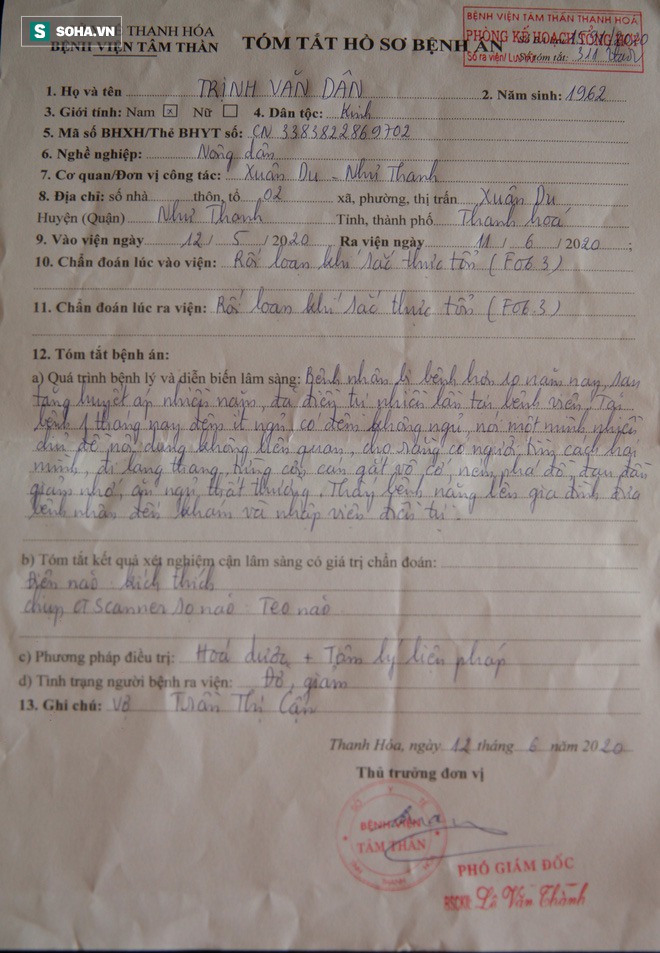 SOHA.VN
SỞ Y TẾ THANH HÓA
BỆNH VIỆN TÂM THẦN
TÓM TẮT HỒ SƠ BỆNH ÁN
BỆNH VIỆN TÂM THẦN THANH HOÁ
PHÒNG KẾ HOẠCH TỔNG HỢP
Số ra viện/ Lưu trữ
Số tóm tắt: 311
1. Họ và tên TRỊNH VĂN DÂN 2. Năm sinh: 1962
3. Giới tính: Nam x Nữ 4. Dân tộc: Kinh
5. Mã số BHXH/Thẻ BHYT số: CN 3383822869702
6. Nghề nghiệp: Nông dân
7. Cơ quan/Đơn vị công tác: Xuân Du - Như Thanh
8. Địa chỉ: số nhà thôn, tổ 02 xã, phường, thị trấn Xuân Du
Huyện (Quận) Như Thanh Tỉnh, thành phố Thanh hoá
9. Vào viện ngày 12 / 5 / 2020 Ra viện ngày 11 / 6 / 2020 ;
10. Chẩn đoán lúc vào viện: Rối loạn khí sắc thực tổn (F06.3)
11. Chẩn đoán lúc ra viện: Rối loạn khí sắc thực tổn (F06.3)
12. Tóm tắt bệnh án:
a) Quá trình bệnh lý và diễn biến lâm sàng: Bệnh nhân bị bệnh hơn 10 năm nay, sau
tăng huyết áp nhiều năm, đã điều trị nhiều lần tại bệnh viện. Tái
bệnh 1 tháng nay đêm ít ngủ, có đêm không ngủ, nói một mình nhiều
chủ đề nội dung không liên quan, cho rằng có người tìm cách hại
mình, đi lang thang, từng cơn cáu gắt vô cớ, ném phá đồ, đau đầu
giảm nhớ, ăn ngủ thất thường. Thấy bệnh nặng lên gia đình đưa
bệnh nhân đến khám và nhập viện điều trị.
b) Tóm tắt kết quả xét nghiệm cận lâm sàng có giá trị chẩn đoán:
Điện não: kích thích
chụp CT Scanner sọ não: Teo não
c) Phương pháp điều trị: Hoá dược + Tâm lý liệu pháp
d) Tình trạng người bệnh ra viện: Đỡ, giảm
13. Ghi chú: Vợ Trần Thị Cận
Thanh Hóa, ngày 12 tháng 6 năm 2020
Thủ trưởng đơn vị
BỆNH VIỆN
TÂM THẦN
PHÓ GIÁM ĐỐC
BSCKII Lê Văn Thành